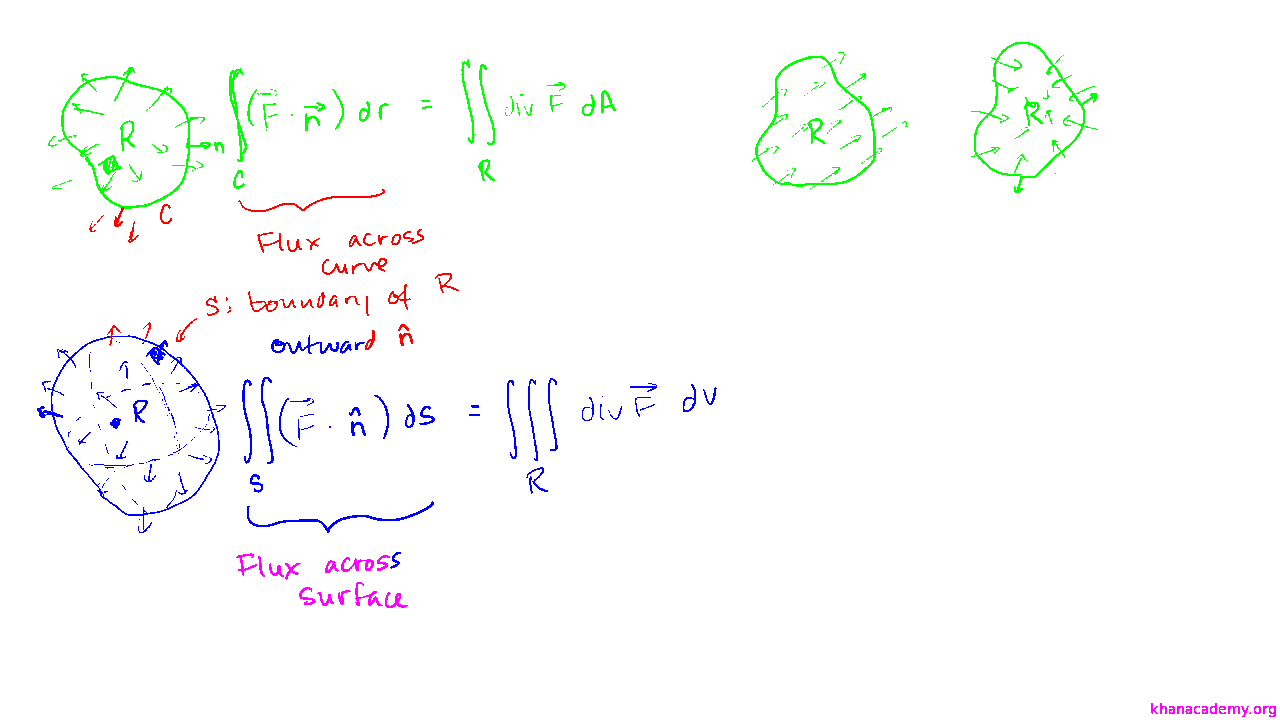 R
n
C
∫ (F⃗ · n⃗) dr = ∬ div F⃗ dA
C
R
R
R
Flux across
curve
S: boundary of R
outward n̂
R
∬ (F⃗ · n̂) ds = ∭ div F⃗ dv
S
R
Flux across
surface
khanacademy.org